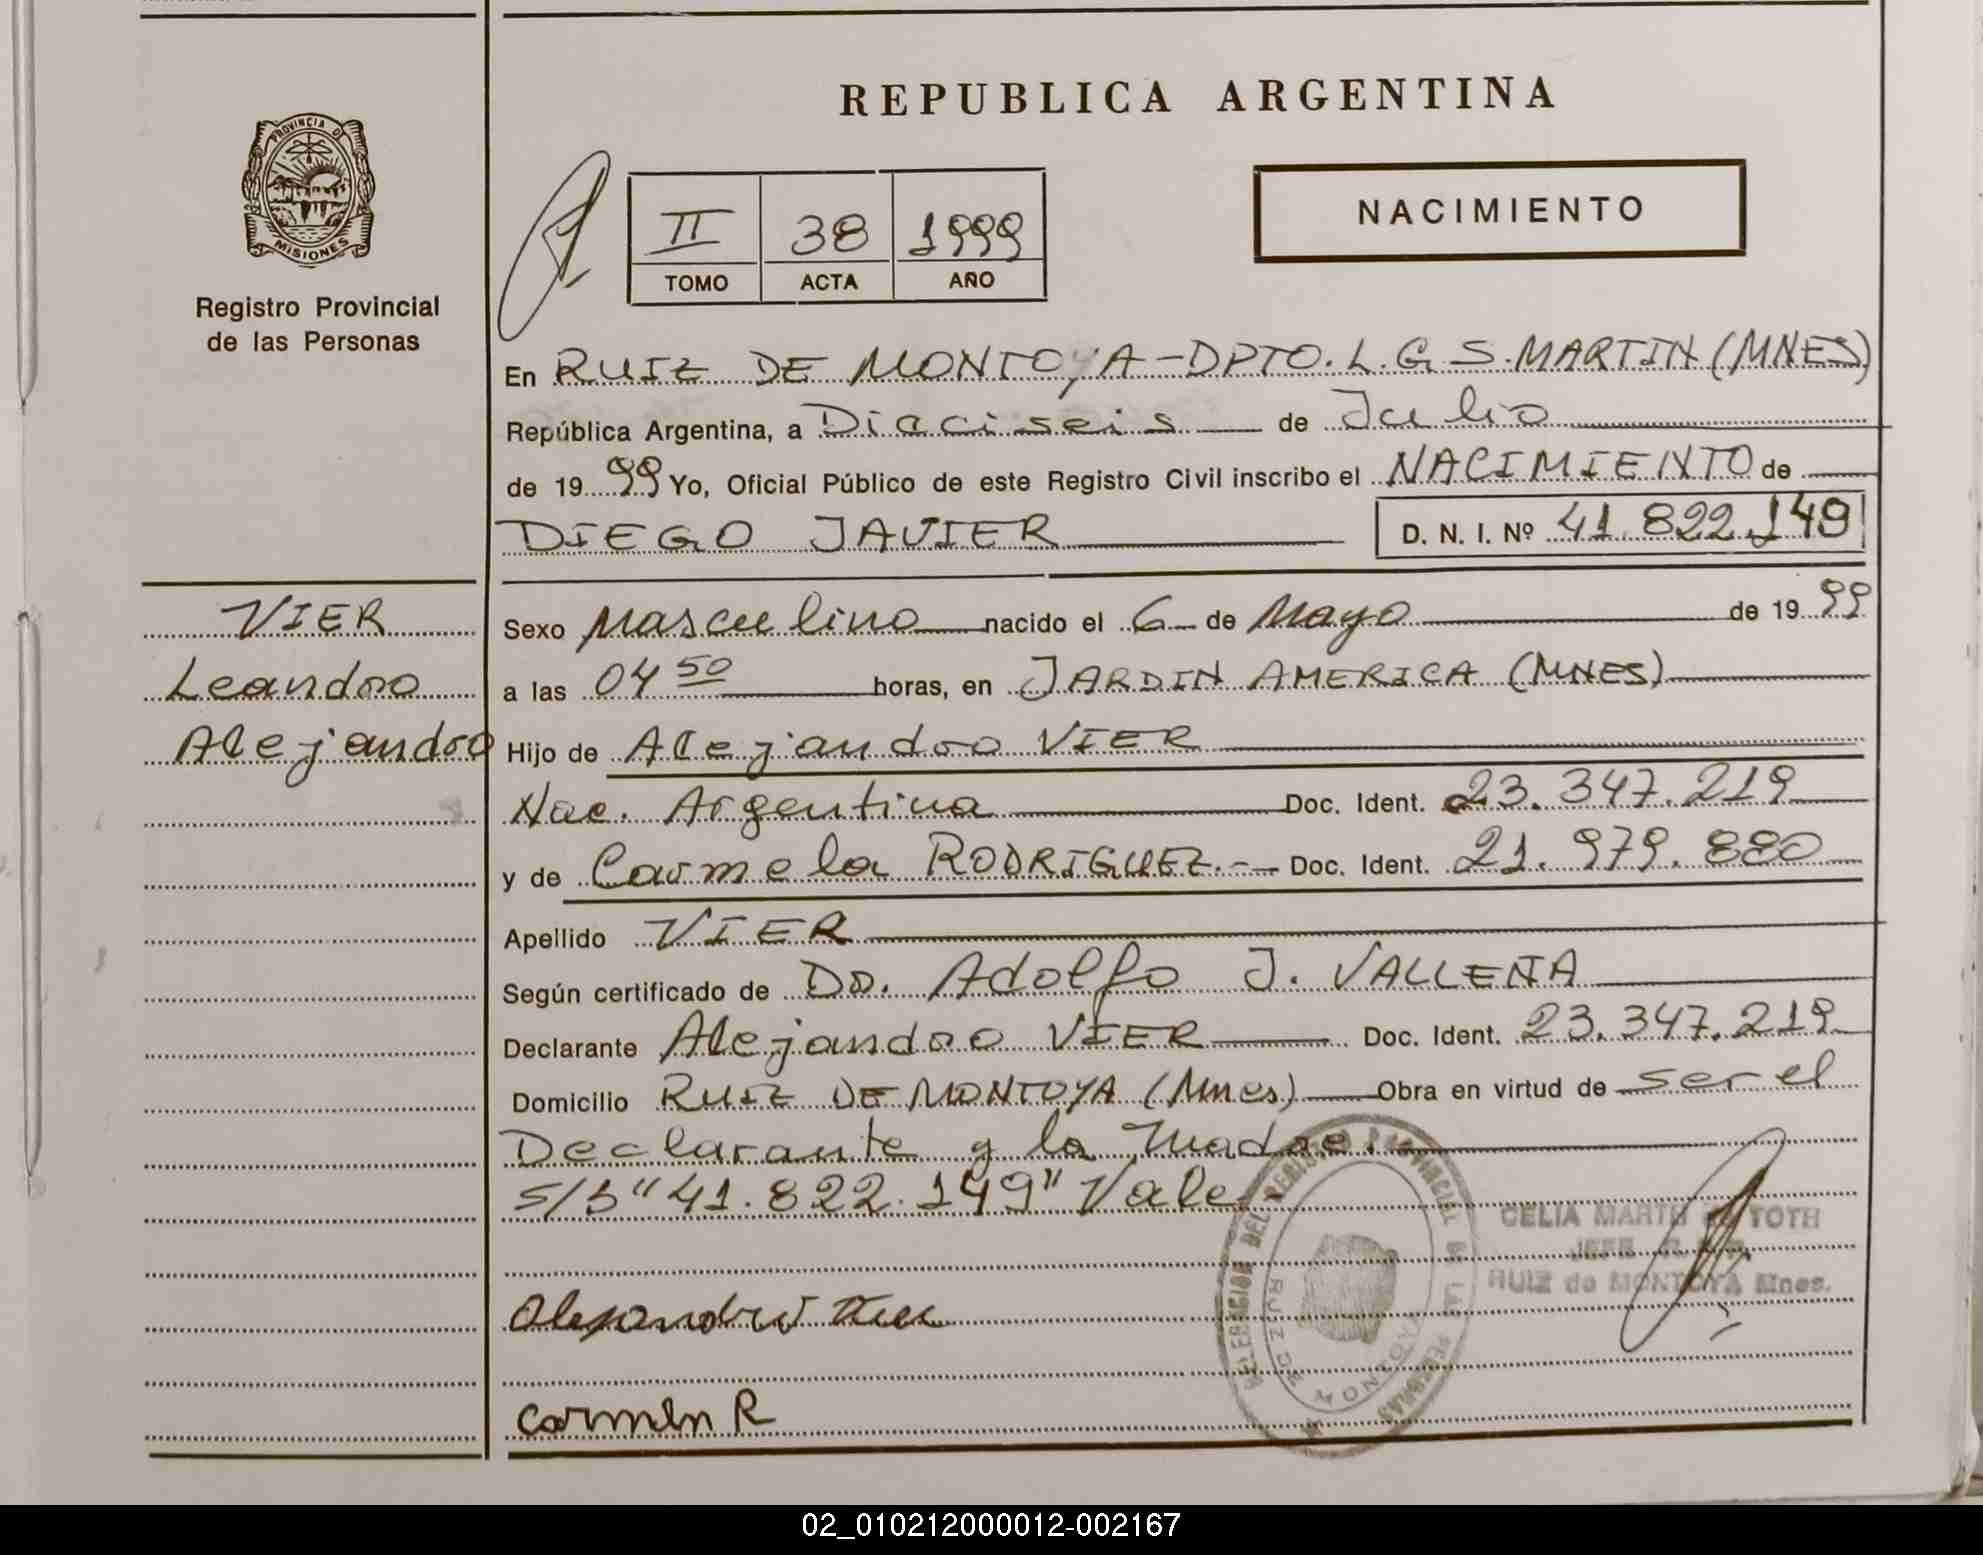 REPUBLICA ARGENTINA
PROVINCIA DE
MISIONES
Registro Provincial
de las Personas
II 38 1999
TOMO ACTA AÑO
NACIMIENTO
En RUIZ DE MONTOYA-DPTO. L. G S. MARTIN (MNES)
República Argentina, a Dieciseis de Julio
de 19 99 Yo, Oficial Público de este Registro Civil inscribo el NACIMIENTO de
DIEGO JAVIER D. N. I. Nº 41.822.149
VIER
Leandro
Alejandro
Sexo Masculino nacido el 6 de Mayo de 19 99
a las 04 50 horas, en JARDIN AMERICA (MNES)
Hijo de Alejandro VIER
Nac. Argentina Doc. Ident. 23.347.219
y de Carmela RODRIGUEZ.- Doc. Ident. 21.979.880
Apellido VIER
Según certificado de Dr. Adolfo J. VALLENA
Declarante Alejandro VIER Doc. Ident. 23.347.219
Domicilio RUIZ DE MONTOYA (Mnes) Obra en virtud de ser el
Declarante y la Madre.
S/B "41.822.149" Vale
CELIA TOTH
JEFE
RUIZ de MONTOYA Mnes.
DELEGACION DEL REGISTRO PROVINCIAL DE LAS PERSONAS
RUIZ DE MONTOYA
Carmen R
02_010212000012-002167